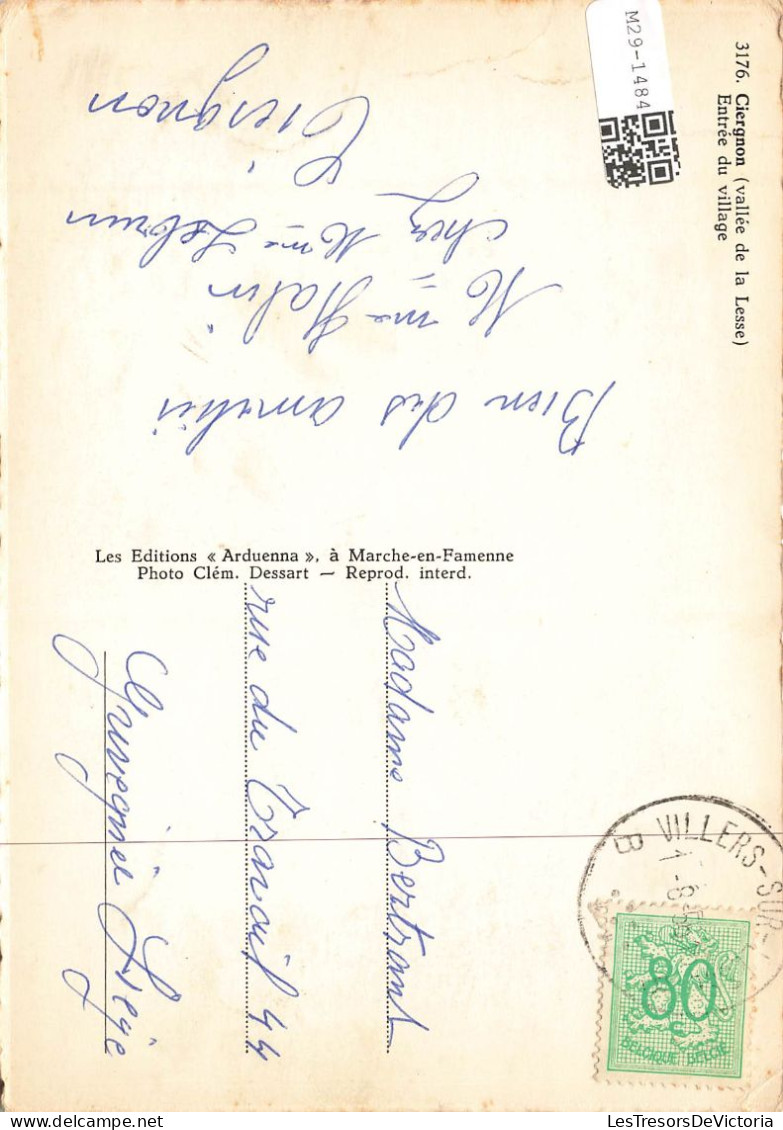 3176. Ciergnon (vallée de la Lesse)
Entrée du village
M29-1484
Bien des amitiés
Mme Halin
chez Mme Lebrun
Ciergnon
Les Editions « Arduenna », à Marche-en-Famenne
Photo Clém. Dessart — Reprod. interd.
Madame Bertrand
rue du Travail 44
Grivegnée Liège
B VILLERS-SUR-
80
BELGIQUE BELGIË
Delcampe.net
LesTresorsDeVictoria